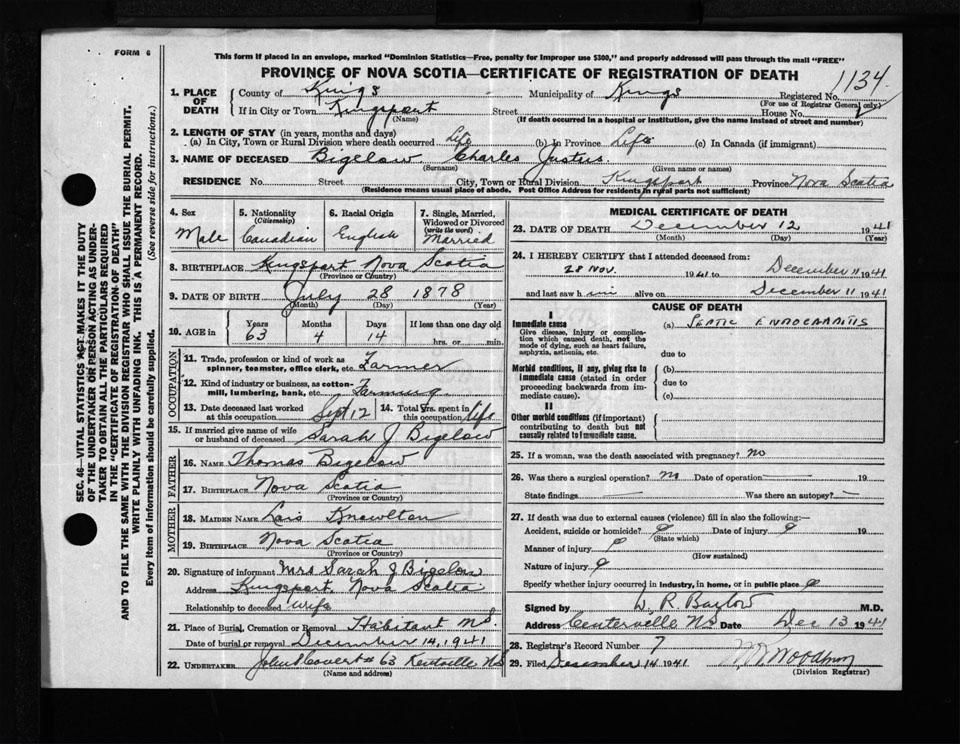 FORM 6
This form if placed in an envelope, marked "Dominion Statistics—Free, penalty for improper use $300," and properly addressed will pass through the mail "FREE"
PROVINCE OF NOVA SCOTIA—CERTIFICATE OF REGISTRATION OF DEATH
1134
1. PLACE OF DEATH
County of Kings Municipality of Kings Registered No.
(For use of Registrar General only)
If in City or Town Kingsport Street House No.
(Name) (If death occurred in a hospital or institution, give the name instead of street and number)
2. LENGTH OF STAY (in years, months and days)
(a) In City, Town or Rural Division where death occurred Life (b) In Province Life (c) In Canada (if immigrant)
3. NAME OF DECEASED Bigelow Charles Justus
(Surname) (Given name or names)
RESIDENCE No. Street City, Town or Rural Division Kingsport Province Nova Scotia
(Residence means usual place of abode. Post Office Address for residents in rural parts not sufficient)
4. Sex Male
5. Nationality (Citizenship) Canadian
6. Racial Origin English
7. Single, Married, Widowed or Divorced (write the word) Married
8. BIRTHPLACE Kingsport Nova Scotia
(Province or Country)
9. DATE OF BIRTH July 28 1878
(Month) (Day) (Year)
10. AGE in Years Months Days If less than one day old
63 4 14 hrs. or min.
OCCUPATION
11. Trade, profession or kind of work as spinner, teamster, office clerk, etc. Farmer
12. Kind of industry or business, as cotton-mill, lumbering, bank, etc. Farming
13. Date deceased last worked at this occupation Sept 12
14. Total yrs. spent in this occupation life
15. If married give name of wife or husband of deceased Sarah J Bigelow
FATHER
16. NAME Thomas Bigelow
17. BIRTHPLACE Nova Scotia
(Province or Country)
MOTHER
18. MAIDEN NAME Lois Knowlton
19. BIRTHPLACE Nova Scotia
(Province or Country)
20. Signature of informant Mrs Sarah J Bigelow
Address Kingsport, Nova Scotia
Relationship to deceased wife
21. Place of Burial, Cremation or Removal Habitant N.S.
Date of burial or removal December 14, 1941
22. UNDERTAKER Kentville NS
(Name and address)
MEDICAL CERTIFICATE OF DEATH
23. DATE OF DEATH December 12 1941
(Month) (Day) (Year)
24. I HEREBY CERTIFY that I attended deceased from:
28 Nov. 1941 to December 11 1941
and last saw him alive on December 11 1941
CAUSE OF DEATH
I
Immediate cause
Give disease, injury or complication which caused death, not the mode of dying, such as heart failure, asphyxia, asthenia, etc.
(a) Septic Endocarditis
due to
Morbid conditions, if any, giving rise to immediate cause (stated in order proceeding backwards from immediate cause).
(b)
due to
(c)
II
Other morbid conditions (if important) contributing to death but not causally related to immediate cause.
25. If a woman, was the death associated with pregnancy? no
26. Was there a surgical operation? no Date of operation 19
State findings Was there an autopsy?
27. If death was due to external causes (violence) fill in also the following:—
Accident, suicide or homicide? Date of injury 19
(State which)
Manner of injury
(How sustained)
Nature of injury
Specify whether injury occurred in industry, in home, or in public place
Signed by W. R. Barlow M.D.
Address Centerville NS Date Dec 13 1941
28. Registrar's Record Number 7
29. Filed December 14 1941
(Division Registrar)
SEC. 46—VITAL STATISTICS ACT MAKES IT THE DUTY
OF THE UNDERTAKER OR PERSON ACTING AS UNDER-
TAKER TO OBTAIN ALL THE PARTICULARS REQUIRED
IN THE "CERTIFICATE OF REGISTRATION OF DEATH"
AND TO FILE THE SAME WITH THE DIVISION REGISTRAR WHO SHALL ISSUE THE BURIAL PERMIT.
WRITE PLAINLY WITH UNFADING INK. THIS IS A PERMANENT RECORD.
Every item of information should be carefully supplied. (See reverse side for instructions.)